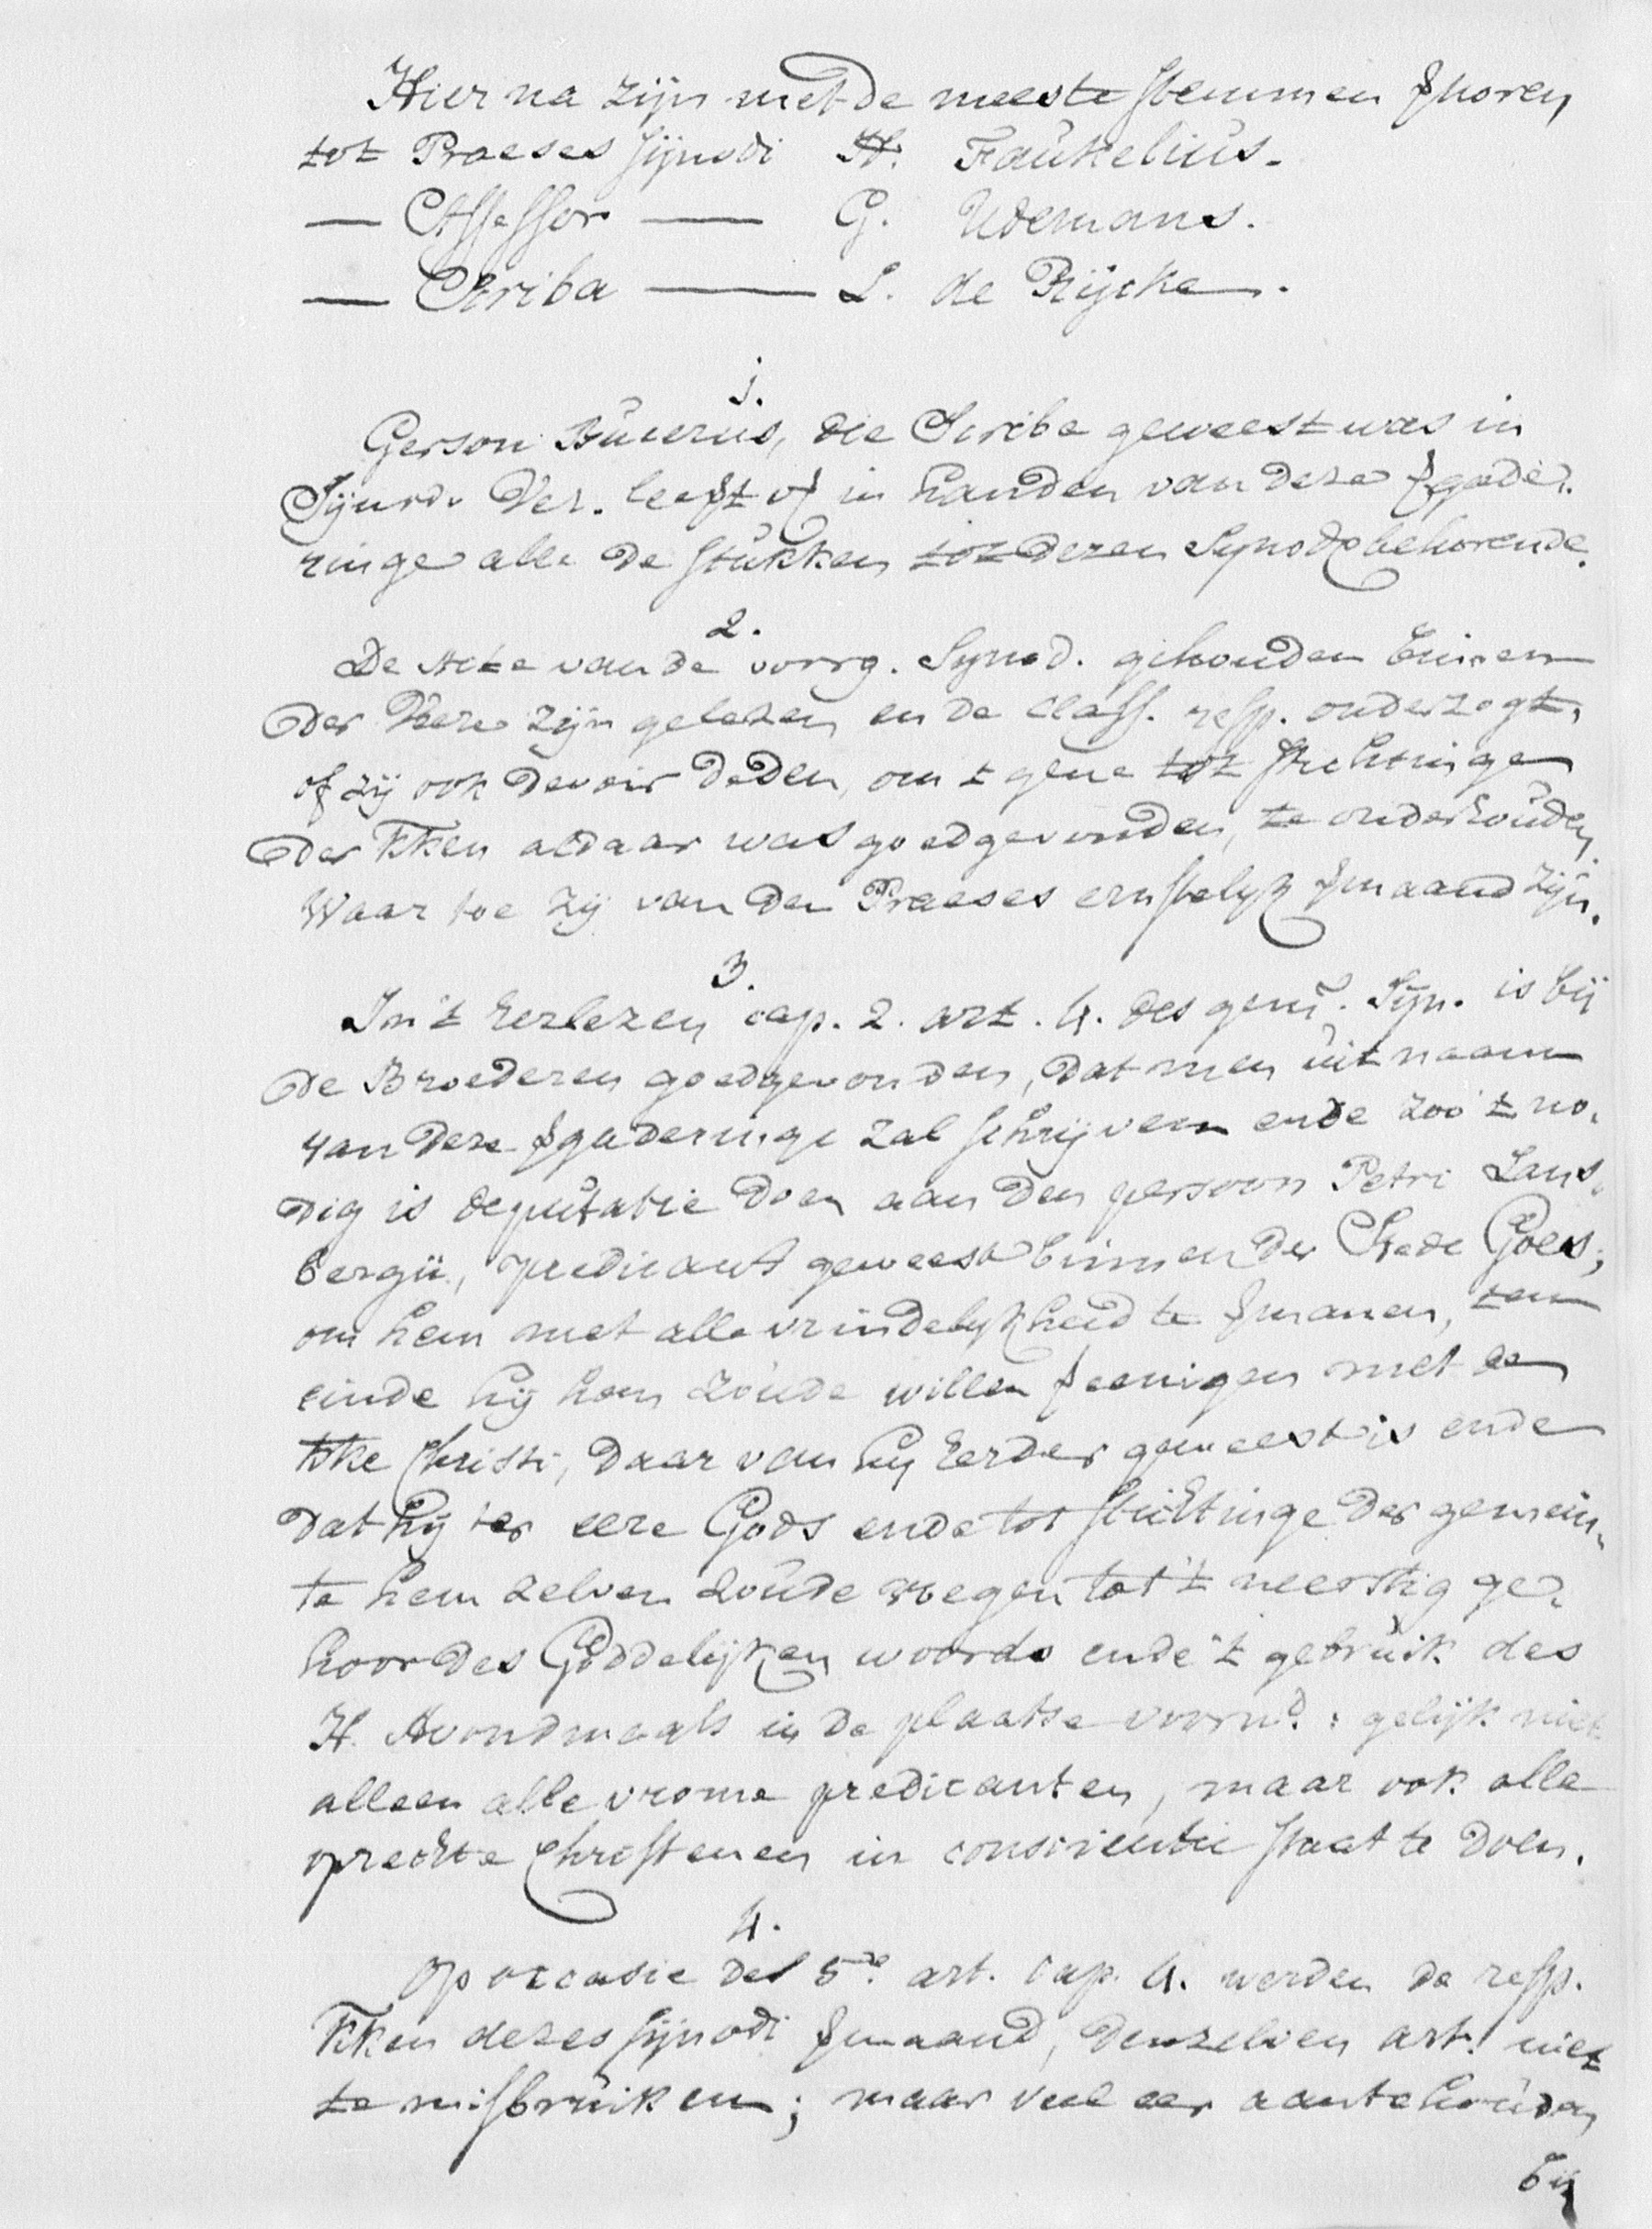 Hier na zijn met de meeste stemmen vkoren
tot Praeses sijnodi H. Faukelius.
— Assessor — G. Udemans.
— Scriba — L. de Rijcke.
1.
Gerson Bucerus, die Scriba geweest was in
Sijnod. Ver. leeft of in handen van deze vgade-
ringe alle de stukken tot dezen Synode behorende.
2.
De Acte van de voorg. Synod. gehouden binnen
der Vere zijn gelezen, en de class. resp. onderzogt,
of zij ook devoir deden, om t gene tot stichtinge
der KKen aldaar was goedgevonden, te onderhouden,
Waar toe zij van den Praeses ernstelijk vmaand zijn.
3.
In 't herlezen cap. 2. art. 4. des gem. Sijn. is bij
de Broederen goedgevonden, dat men uit naam
van deze vgaderinge zal schrijven ende zoo 't no-
dig is deputatie doen aan den persoon Petri Lans-
bergii, predicant geweest binnen der Stede Goes;
om hem met alle vrindelijkheid te vmanen, ten
einde hij hem zoude willen veenigen met de
KKe Christi, daar van hij herder geweest is ende
dat hij ter eere Gods ende tot stichtinge der gemein-
te hem zelven zoude voegen tot 't neerstig ge-
hoor des Goddelijken woords ende 't gebruik des
H. Avondmaals in de plaatse voornd.: gelijk niet
alleen alle vrome predicanten, maar ook alle
oprechte Christenen in conscientie staat te doen.
4.
Op occasie des 5de. art. cap. 4. werden de resp.
KKen dezes sijnodi vmaand, denzelven art. niet
te misbruiken; maar veel eer aan te houden
bij